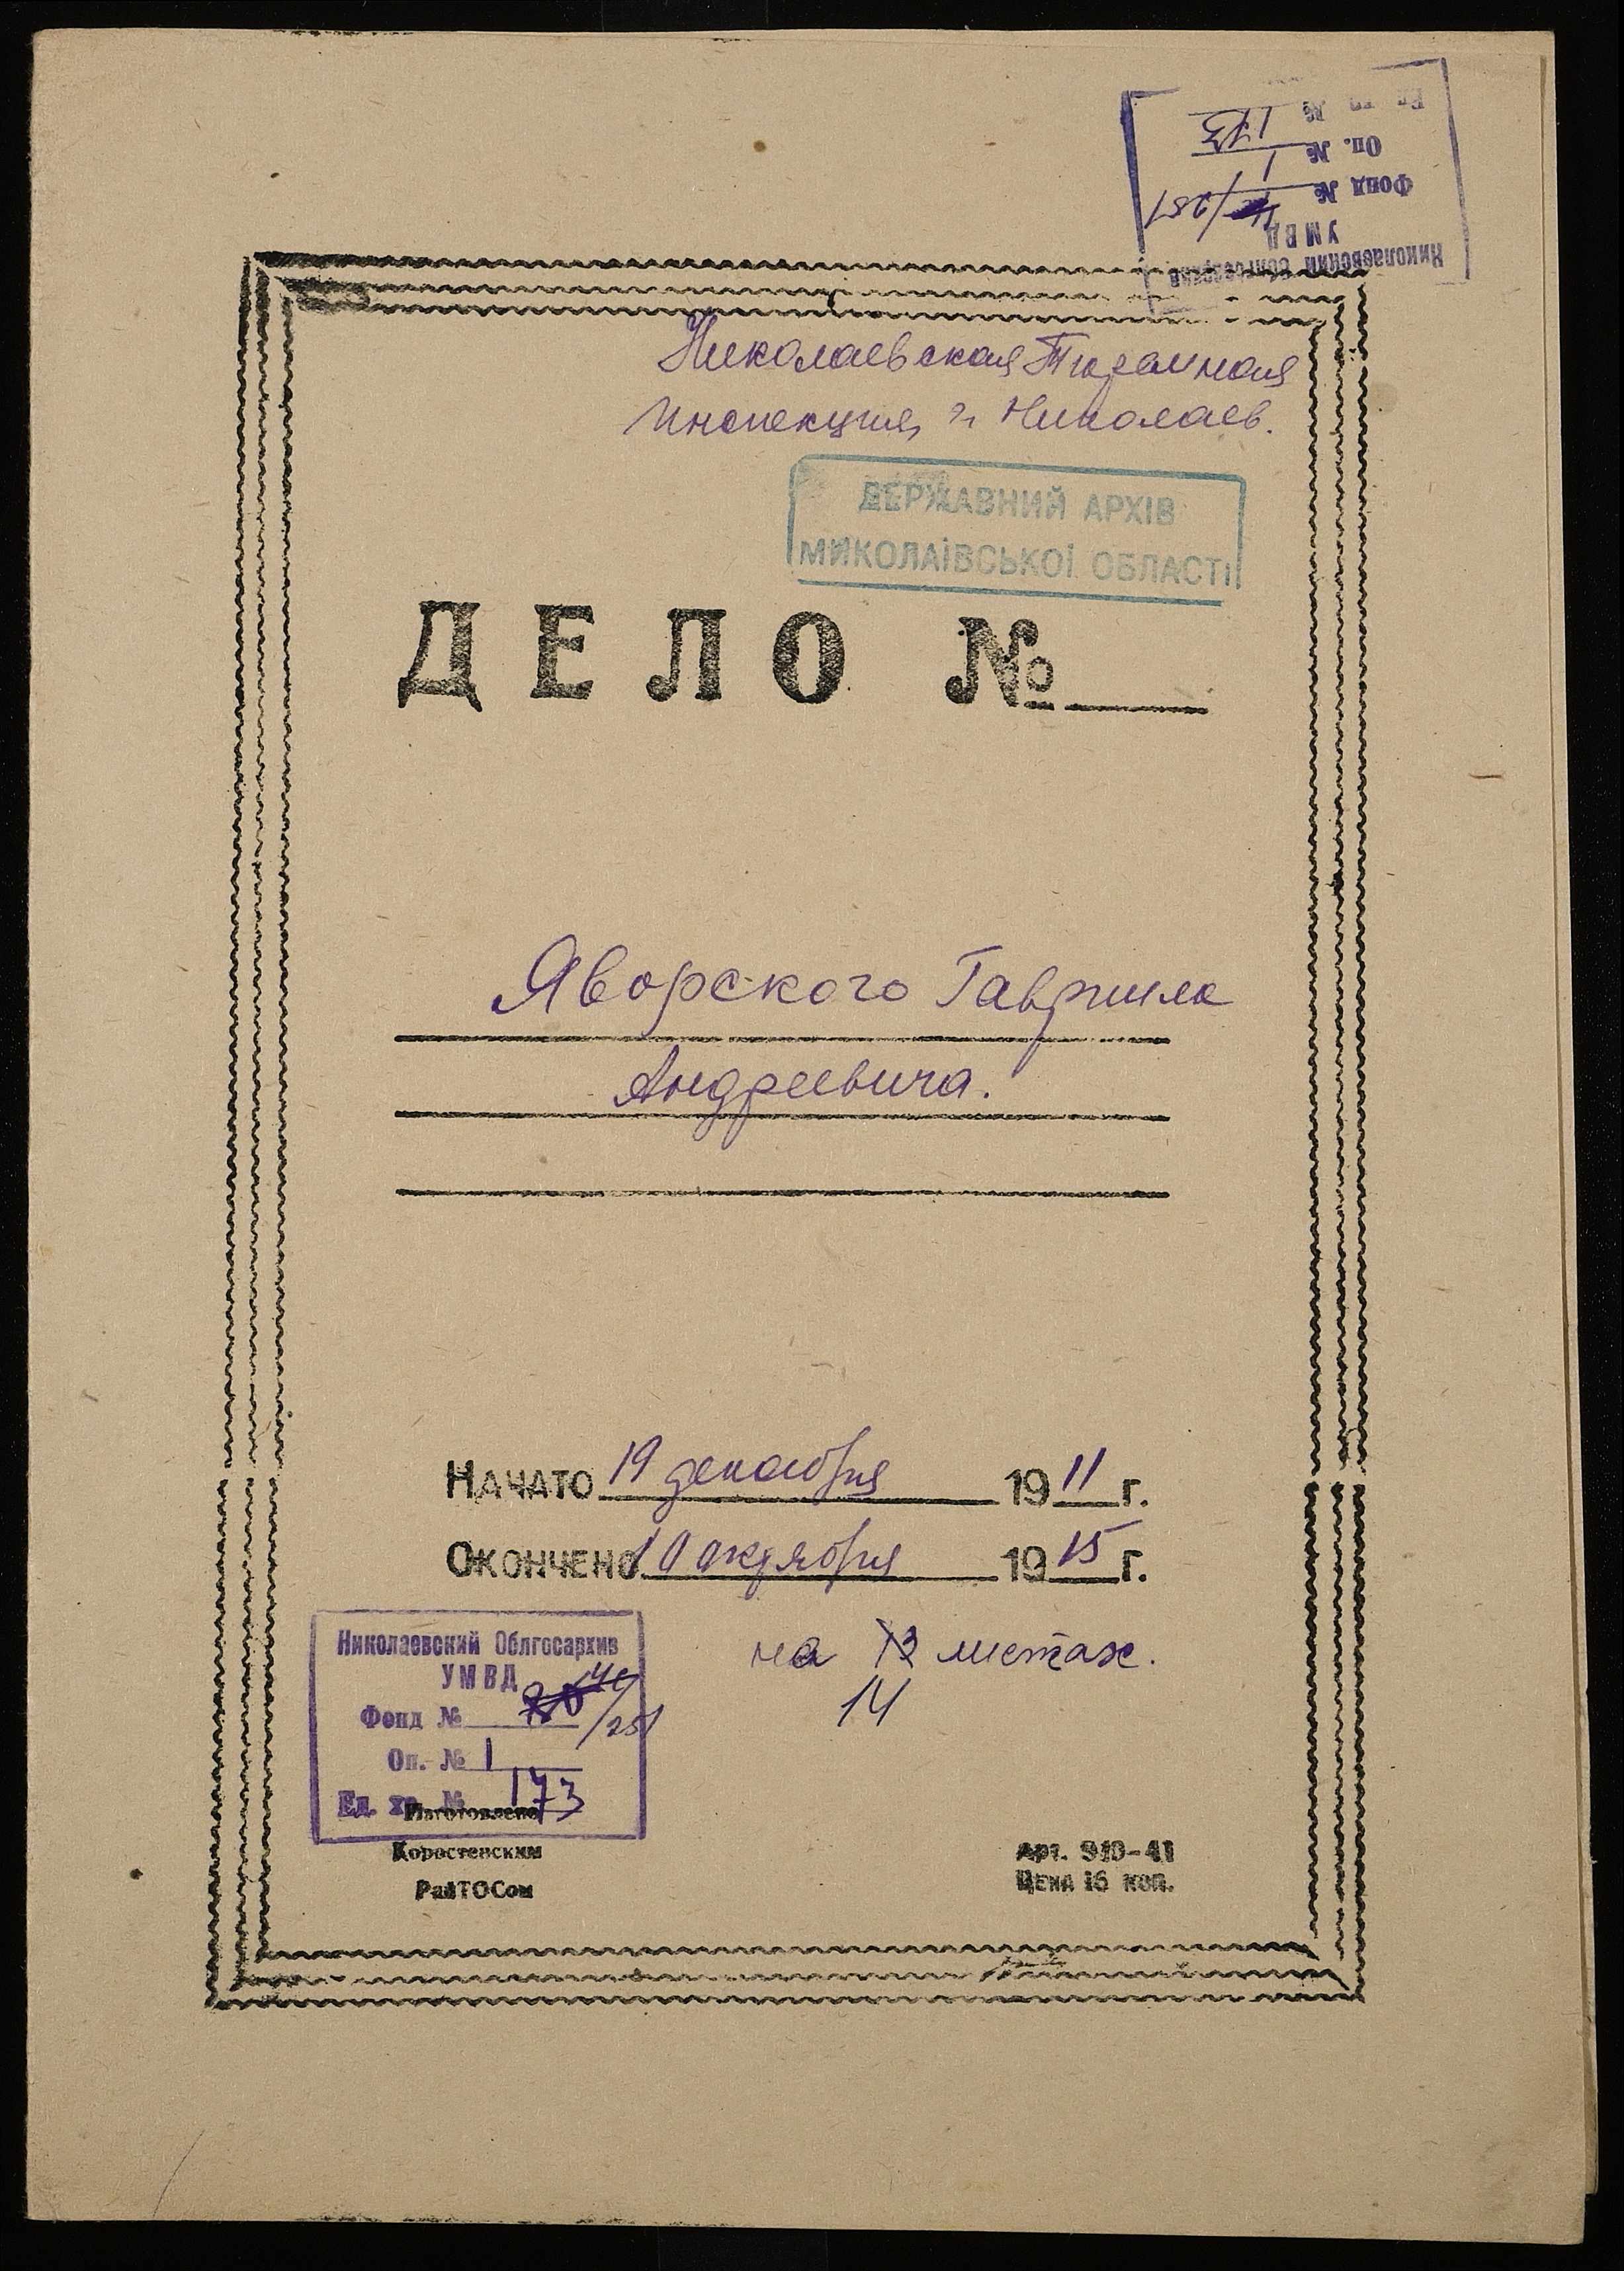 Николаевский Облгосархив
УМВД
Фонд № /251
Оп. № 1
Ед. хр. № 173
Николаевская Тюремная
Инспекция, г. Николаев.
ДЕРЖАВНИЙ АРХІВ
МИКОЛАЇВСЬКОЇ ОБЛАСТІ
ДЕЛО №
Яворского Гавриила
Андреевича.
Начато 19 декабря 1911 г.
Окончено 10 октября 1915 г.
на 13 листах.
14
Николаевский Облгосархив
УМВД
Фонд № /251
Оп. № 1
Ед. хр. № 173
Изготовлено
Коростенским
РайТОСом
Арт. 910-41
Цена 16 коп.